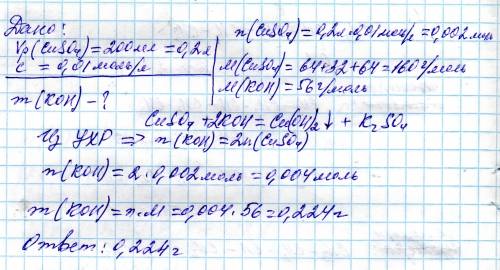 Дано:
Vр(CuSO₄)=200мл=0,2л
c = 0,01моль/л
m(KOH)-?
n(CuSO₄)=0,2л·0,01моль/л=0,002моль
M(CuSO₄)=64+32+64=160г/моль
M(KOH)=56г/моль
CuSO₄+2KOH=Cu(OH)₂↓+K₂SO₄
Из УХР ⇒ n(KOH)=2n(CuSO₄)
n(KOH)=2·0,002моль=0,004моль
m(KOH)=n·M=0,004·56=0,224г
Ответ: 0,224г